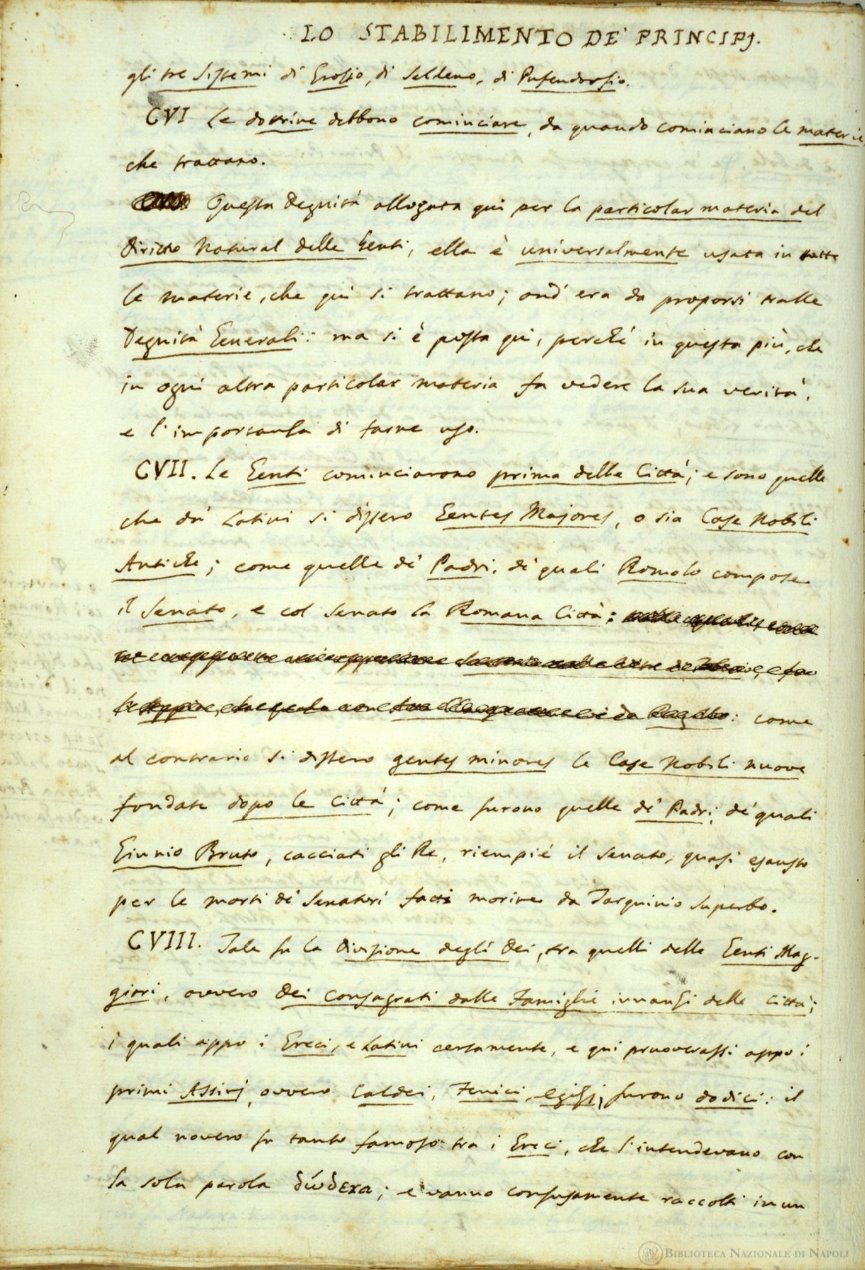 LO STABILIMENTO DE' PRINCIPJ.
gli tre Sistemi di Grozio, di Seldeno, di Pufendorfio.
CVI Le dottrine debbono cominciare, da quando cominciano le materie
che trattano.
Questa Degnità allogata quì per la particolar materia del
Diritto Natural delle Genti, ella è universalmente usata in tutte
le materie, che quì si trattano; ond' era da proporsi tralle
Degnità Generali: ma si è posta quì, perchè in questa più, che
in ogni altra particolar materia fa vedere la sua verità,
e l'importanza di farne uso.
CVII. Le Genti cominciarono prima delle Città; e sono quelle
che da' Latini si dissero Gentes Majores, o sia Case Nobili
Antiche; come quelle de' Padri, de' quali Romolo compose
il Senato, e col Senato la Romana Città:
: come
al contrario si dissero gentes minores le Case Nobili nuove
fondate dopo le Città; come furono quelle de' Padri, de' quali
Giunio Bruto, cacciati gli Re, riempiè il Senato, quasi esausto
per le morti de' Senatori fatti morire da Tarquinio Superbo.
CVIII. Tale fu la divisione degli Dei, tra quelli delle Genti Mag-
giori, ovvero Dei consagrati dalle Famiglie innanzi delle Città;
i quali appo i Greci, e Latini certamente, e qui pruoverassi appo i
primi Assirj, ovvero Caldei, Fenici, Egizj, furono dodici: il
qual novero fu tanto famoso tra i Greci, che l'intendevano con
la sola parola δώδεχα; e vanno confusamente raccolti in un
BIBLIOTECA NAZIONALE DI NAPOLI